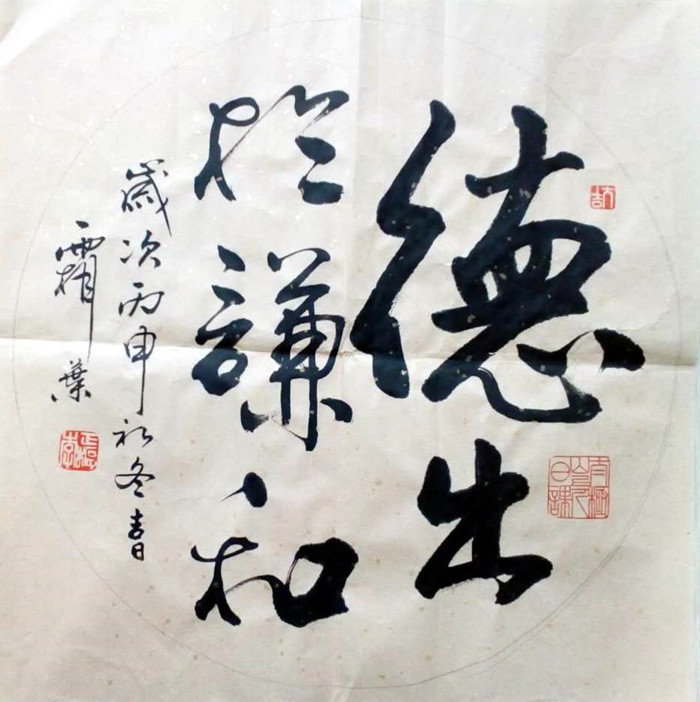 德出
於謙和
歲次丙申初冬書
霜葉